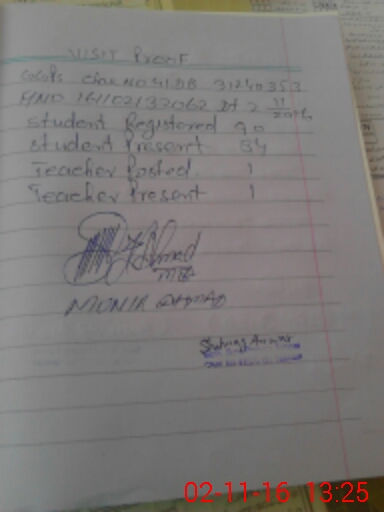 VISIT Proof
31240353
M/NO 161102132062 Dt 2 11 2016
Student Registered 90
Student Present 54
Teacher Posted 1
Teacher Present 1
Ahmed
MUNIR AHMAD
Shahnaz Anwar
02-11-16 13:25